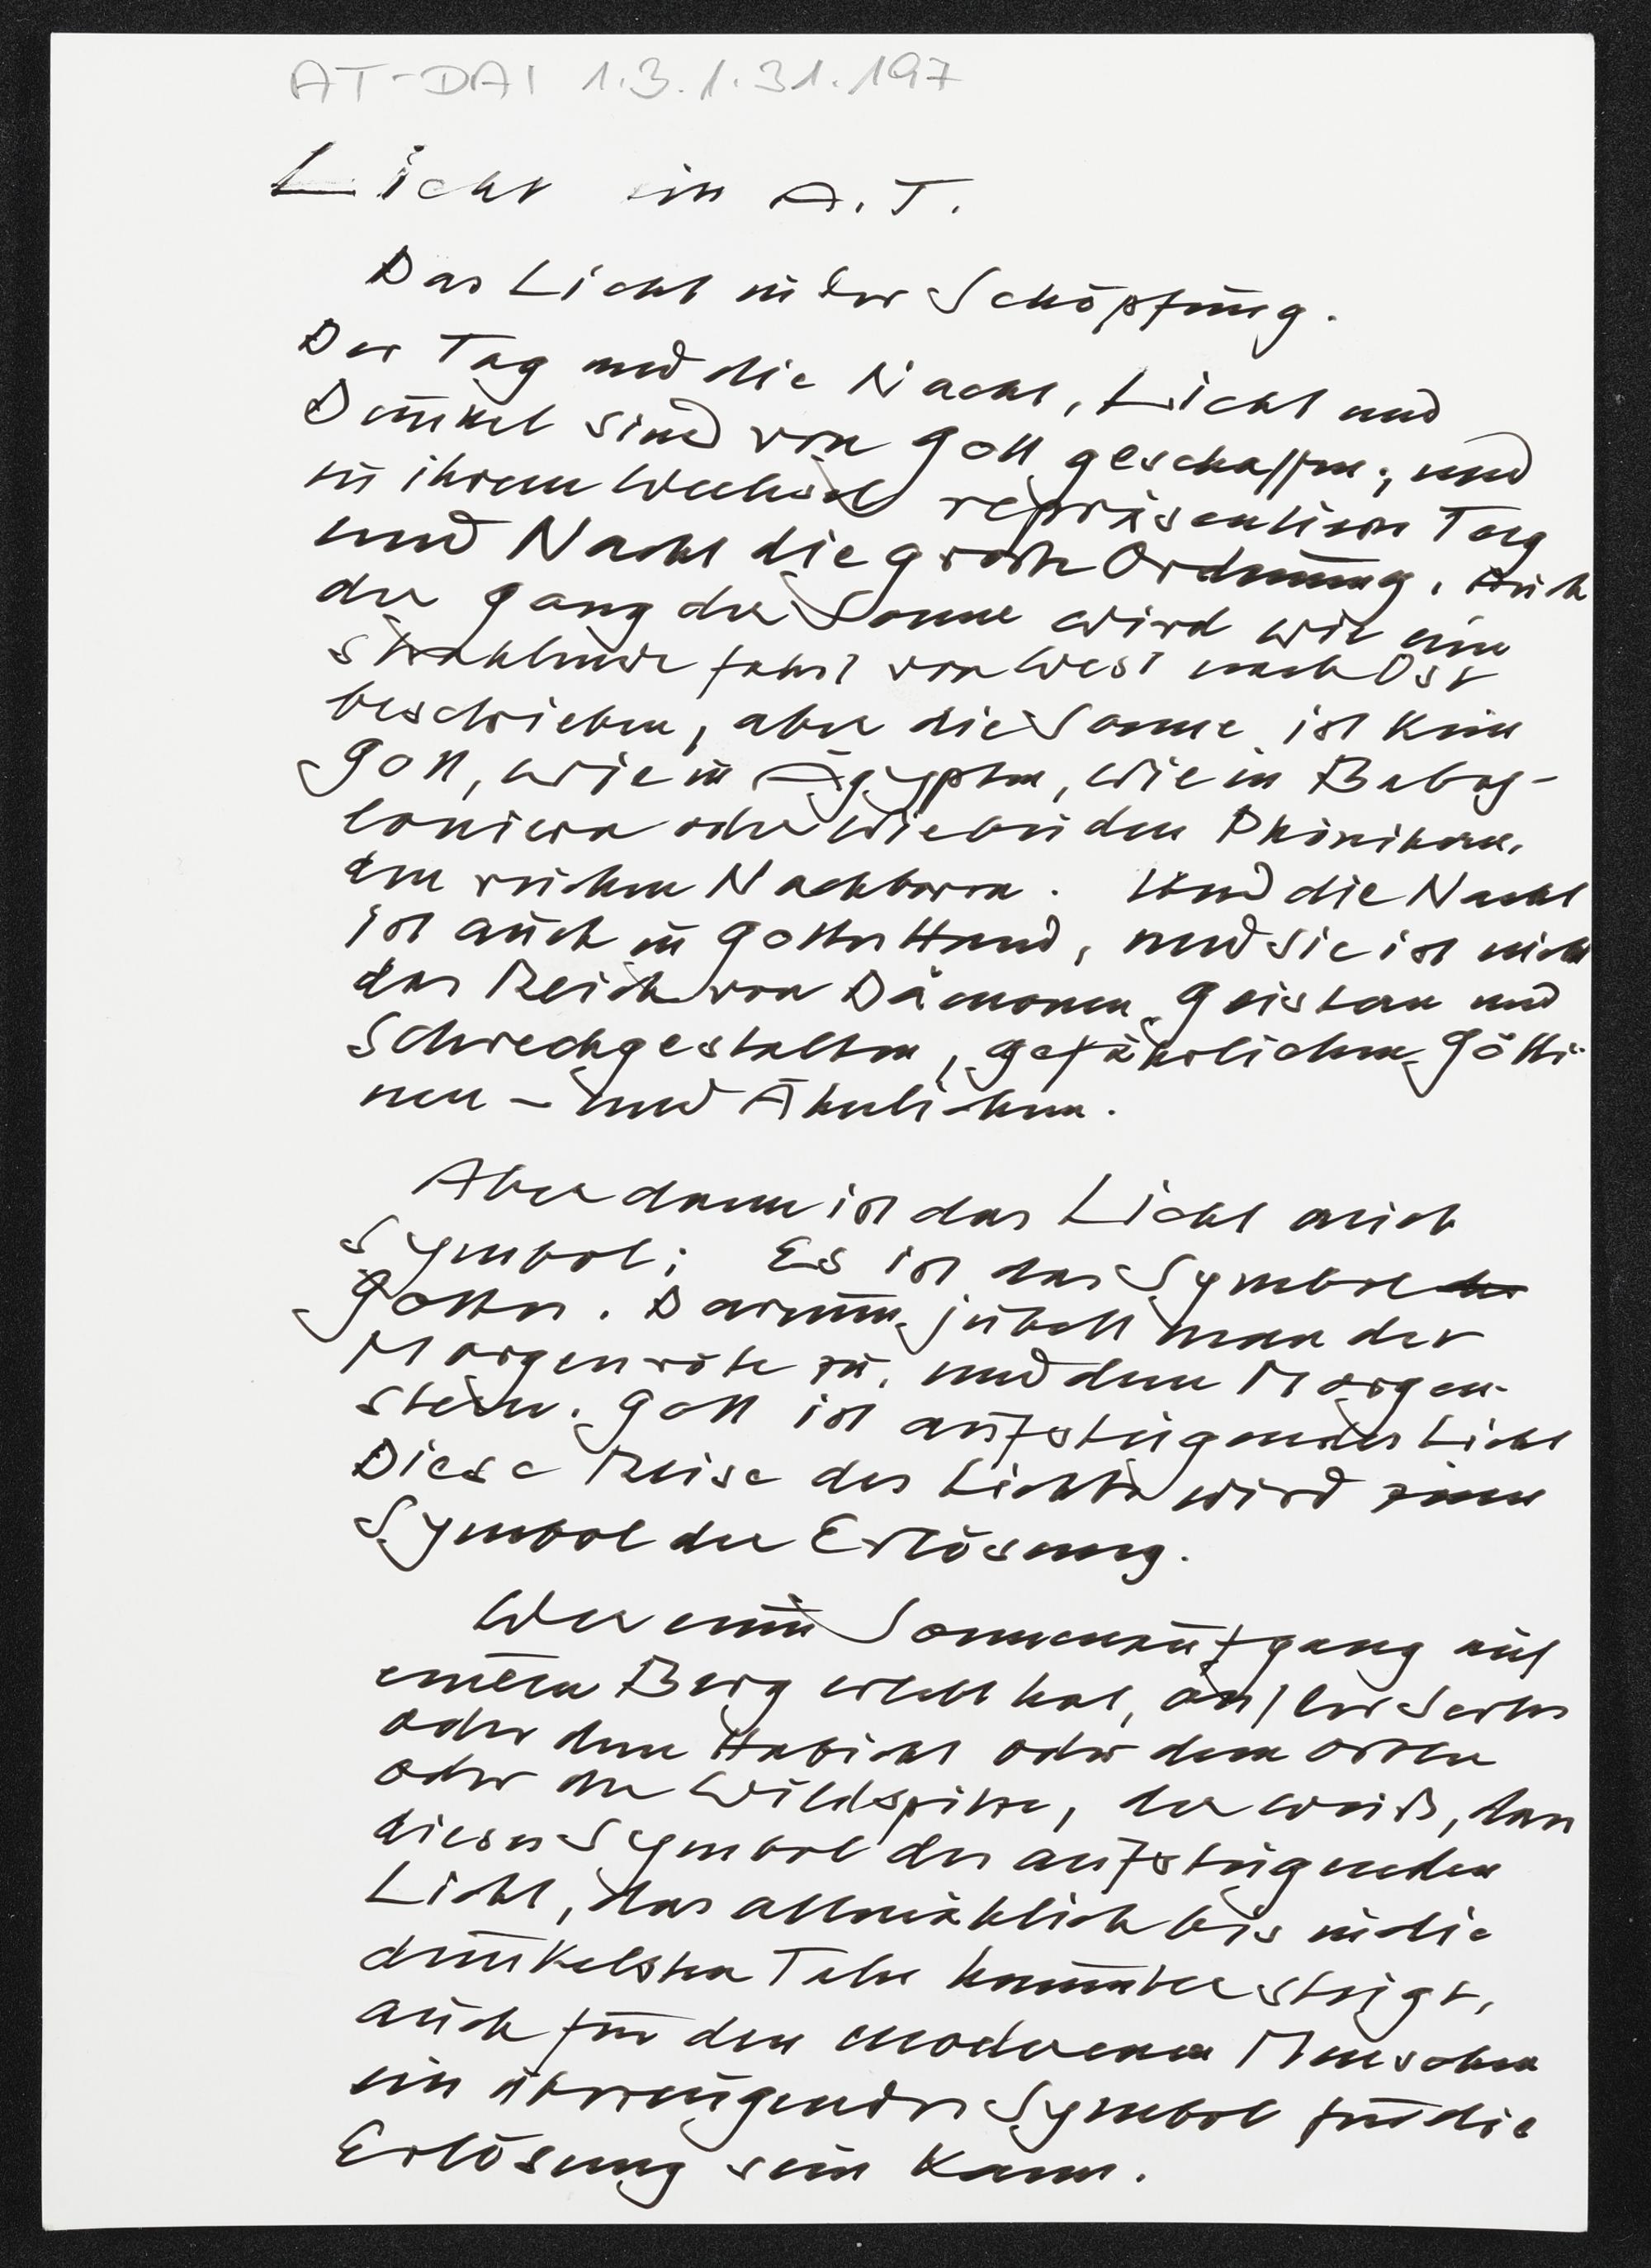 AT-DAI 1.3.1.31.197
Licht im A.T.
Das Licht in der Schöpfung.
Der Tag und die Nacht, Licht und
Dunkel sind von Gott geschaffen, und
in ihrem Wechsel repräsentieren Tag
und Nacht die große Ordnung. Auch
der Gang der Sonne wird wie eine
strahlende Fahrt von West nach Ost
beschrieben, aber die Sonne ist kein
Gott, wie in Ägypten, wie in Baby-
lonien oder wie bei den Phönikern,
den reichen Nachbarn. Und die Nacht
ist auch in Gottes Hand, und sie ist nicht
das Reich von Dämonen, Geistern und
Schreckgestalten, gefährlichen Götti-
nen – und Ähnlichem.
Aber dann ist das Licht auch
Symbol: Es ist das Symbol
Gottes. Darum jubelt man der
Morgenröte zu, und dem Morgen-
stern. Gott ist aufsteigendes Licht
Diese Reise des Lichts wird zum
Symbol der Erlösung.
Wer einen Sonnenaufgang auf
einem Berg erlebt hat, auf der Serles
oder dem Habicht oder dem Ortler
oder der Wildspitze, der weiß, dass
dieses Symbol des aufsteigenden
Licht, das allmählich bis in die
dunkelsten Täler hinuntersteigt,
auch für den modernen Menschen
ein überzeugendes Symbol für die
Erlösung sein kann.